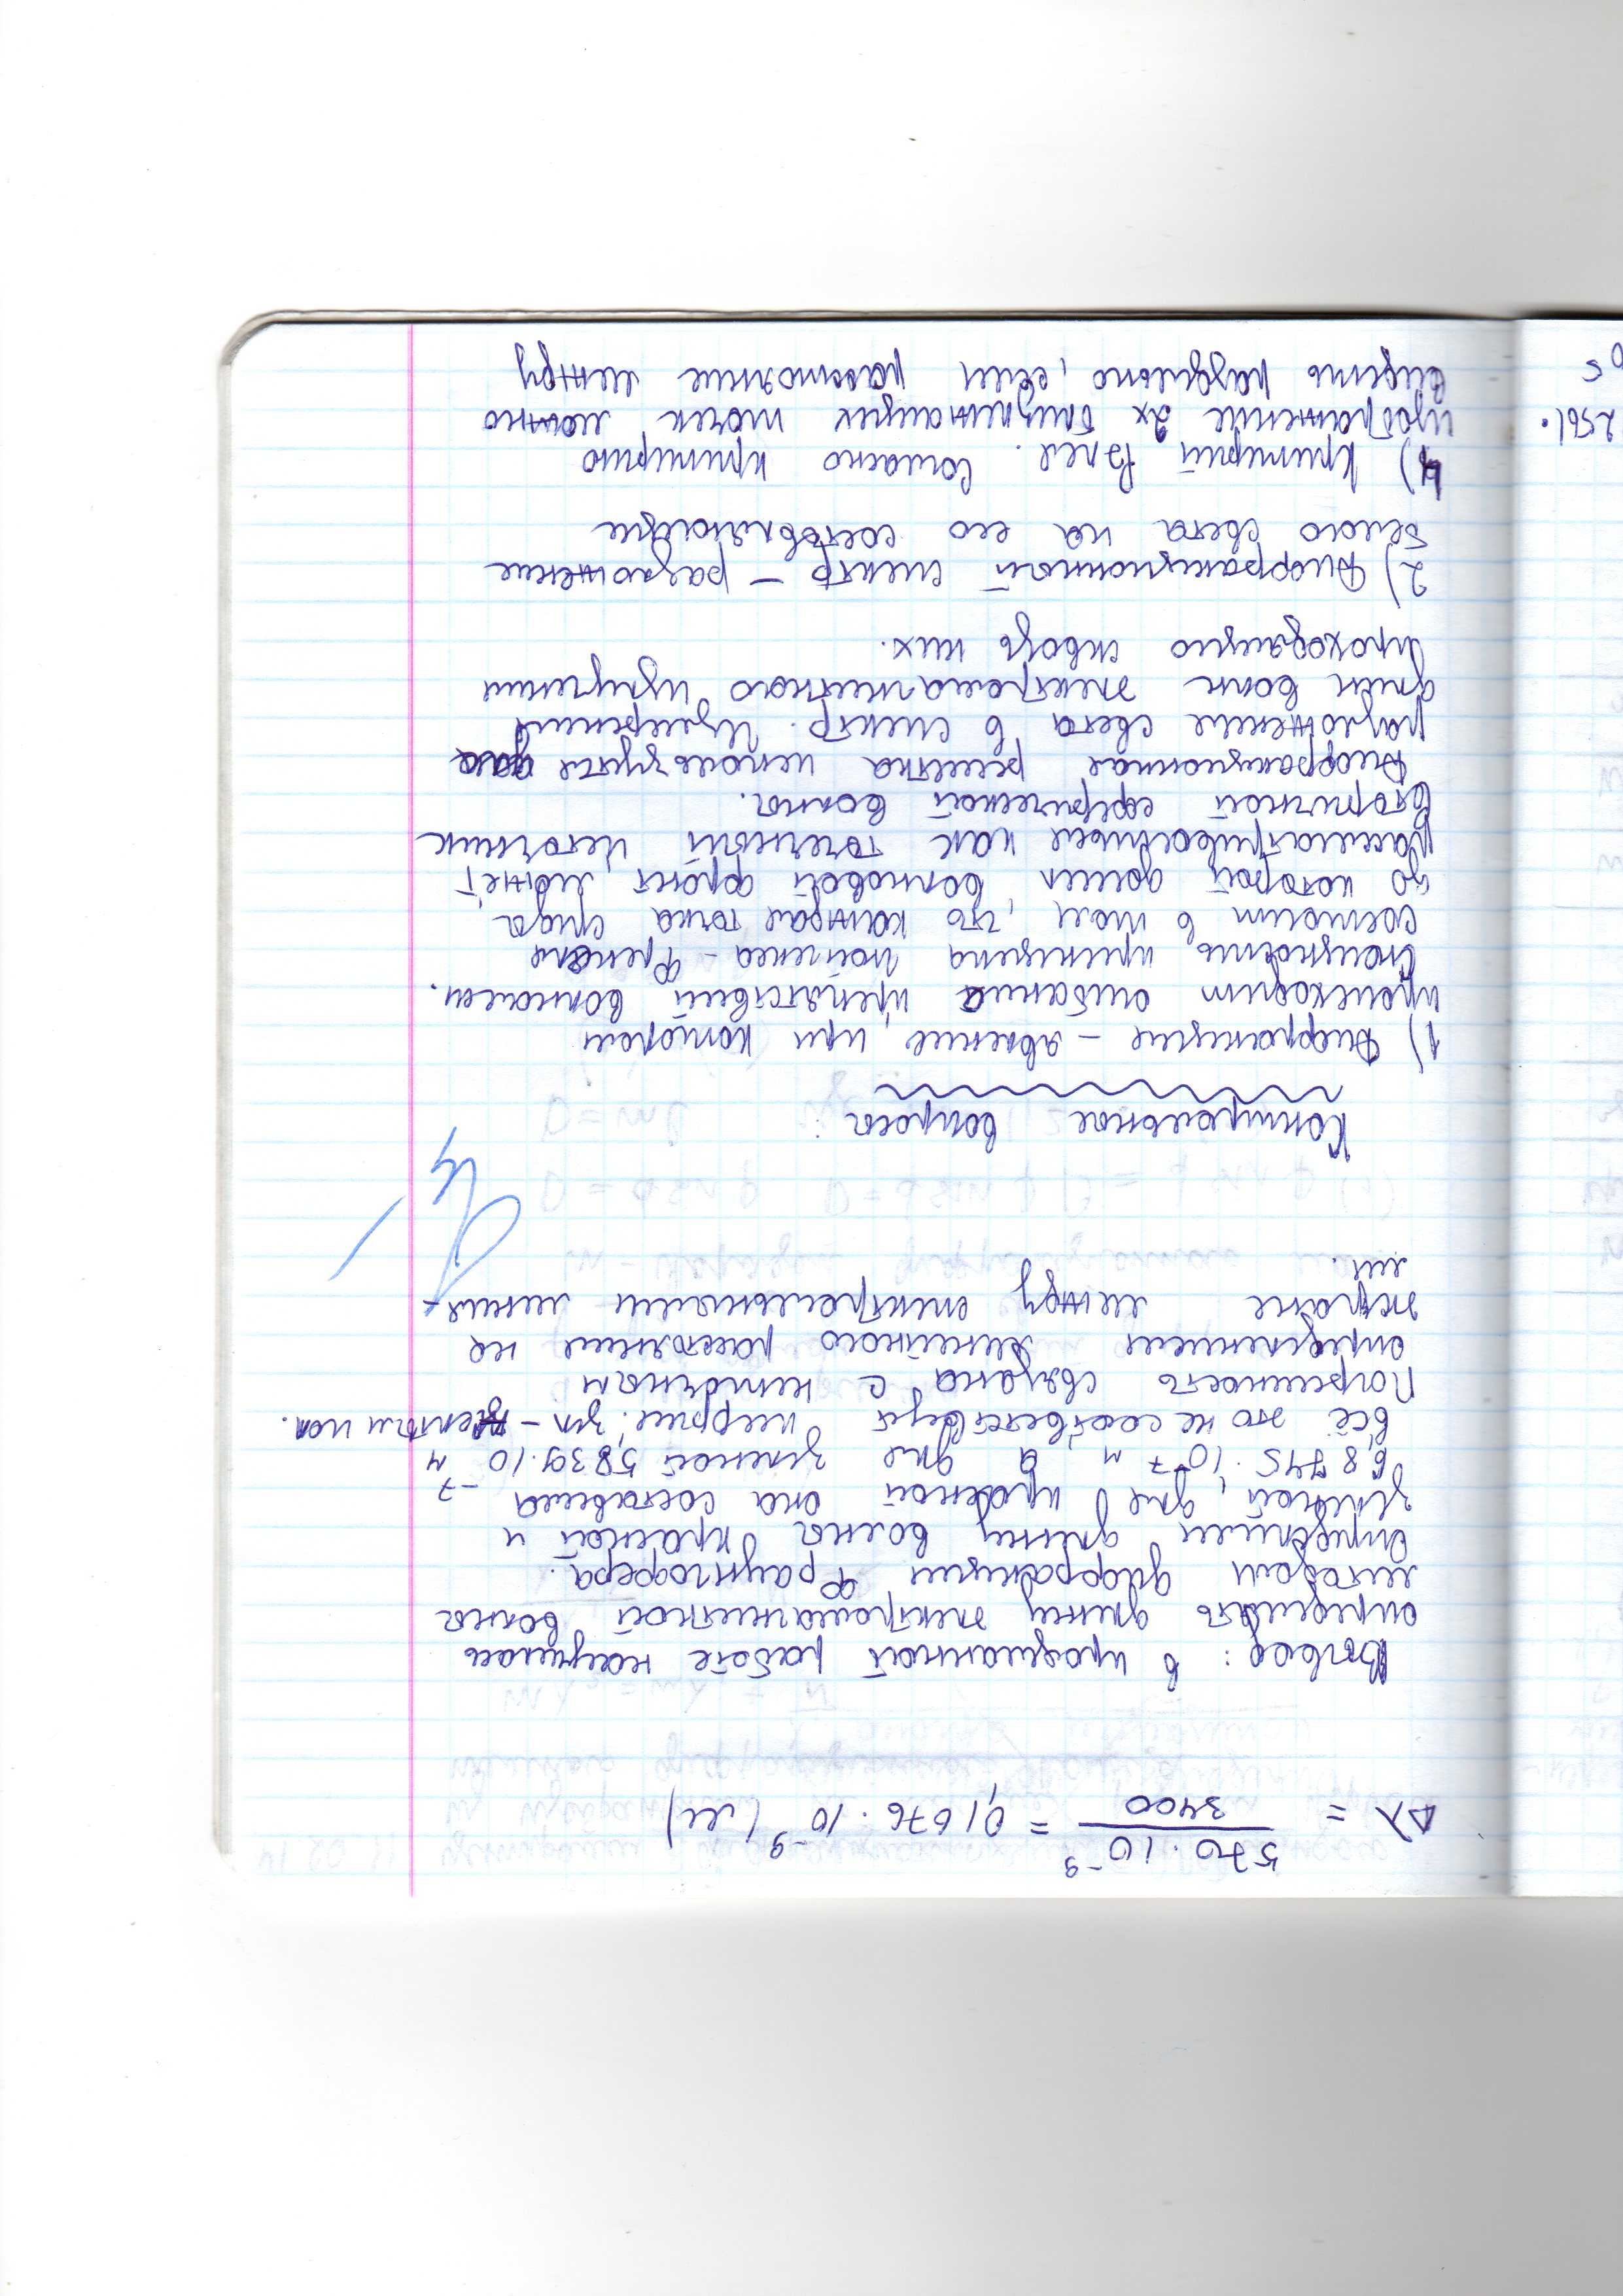 Δλ = 570 · 10⁻⁹ / 3400 = 0,1676 · 10⁻⁹ (м)
Вывод: в проделанной работе научилась
определять длину электромагнитной волны
методом дифракции Фраунгофера.
Определили длину волны красной и
зеленой, для красной она составила
6,8745 · 10⁻⁷ м, а для зеленой 5,839 · 10⁻⁷ м
всё это не соответствует зел - желтым
Погрешность связана с неточным
определением линейного расстояния на
экране между спектральными линия-
ми.
Контрольные вопросы:
1) Дифракция – явление, при котором
происходит огибание препятствий волнами.
Сющность принципа Гюйгенса - Френеля
состоит в том, что каждая точка среды,
до которой дошел волновой фронт, может
рассматриваться как точечный источник
вторичной сферической волны.
Дифракционная решетка используется для
разложения света в спектр. Измерения
длин волн электромагнитного излучения
проходящго сквозь них.
2) Дифракционный спектр – разложение
белого света на его состовляющие
4) Критерий Рэлея. Согласно критерию
изображение 2х близлежащих точек можно
видеть раздельно, если расстояние между
2561.
05